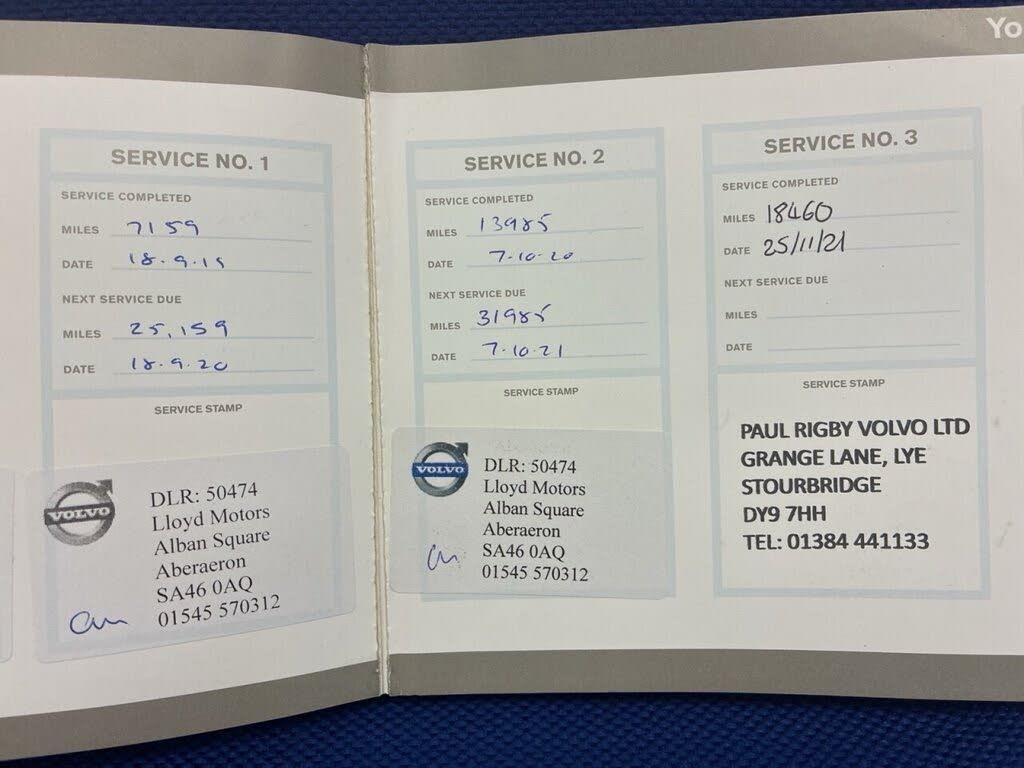 Yo
SERVICE NO. 1
SERVICE COMPLETED
MILES 7159
DATE 18.9.19
NEXT SERVICE DUE
MILES 25,159
DATE 18.9.20
SERVICE STAMP
VOLVO
DLR: 50474
Lloyd Motors
Alban Square
Aberaeron
SA46 0AQ
01545 570312
SERVICE NO. 2
SERVICE COMPLETED
MILES 13985
DATE 7-10-20
NEXT SERVICE DUE
MILES 31985
DATE 7.10.21
SERVICE STAMP
VOLVO
DLR: 50474
Lloyd Motors
Alban Square
Aberaeron
SA46 0AQ
01545 570312
SERVICE NO. 3
SERVICE COMPLETED
MILES 18460
DATE 25/11/21
NEXT SERVICE DUE
MILES
DATE
SERVICE STAMP
PAUL RIGBY VOLVO LTD
GRANGE LANE, LYE
STOURBRIDGE
DY9 7HH
TEL: 01384 441133